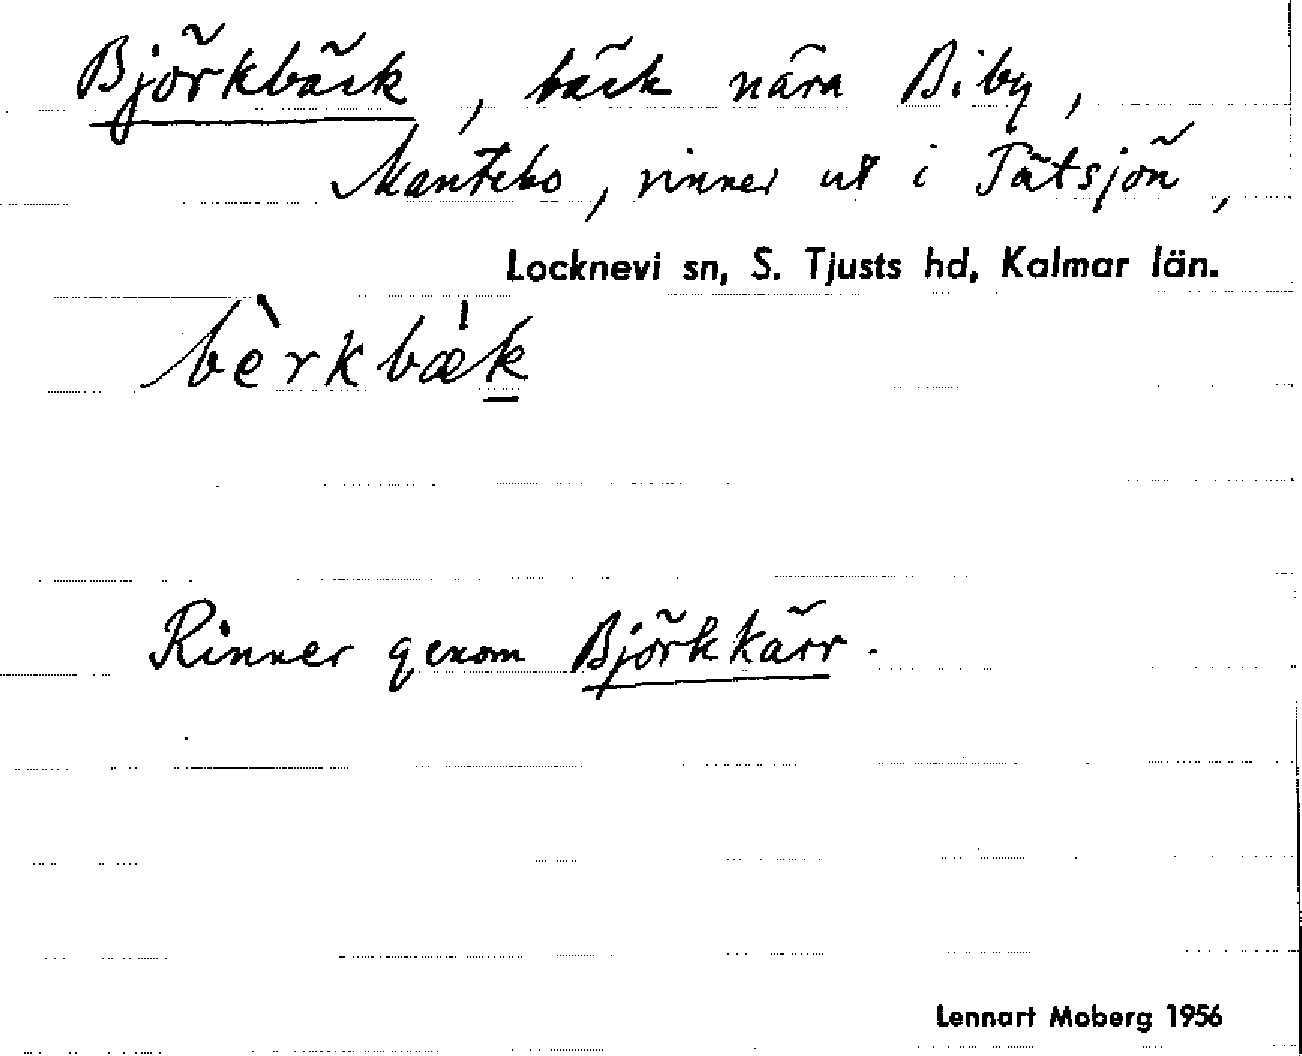 Björkbäck, bäck nära Biby,
Mantebo, rinner ut i Tätsjön,
Locknevi sn, S. Tjusts hd, Kalmar län.
bèrkbæ̀k
Rinner genom Björkkärr.
Lennart Moberg 1956